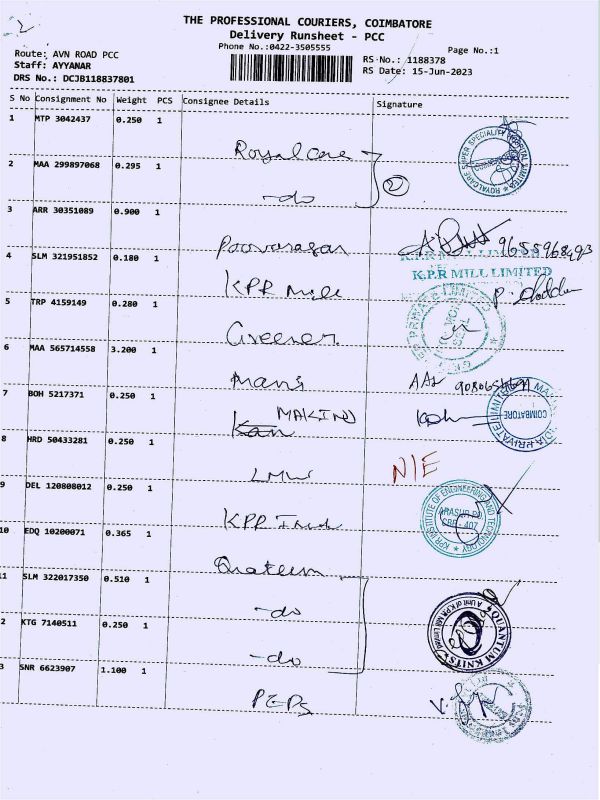 2
THE PROFESSIONAL COURIERS, COIMBATORE
Delivery Runsheet - PCC
Phone No.:0422-3505555
Page No.:1
Route: AVN ROAD PCC
RS No.: 1188378
Staff: AYYANAR
RS Date: 15-Jun-2023
DRS No.: DCJB118837801
S No Consignment No Weight PCS Consignee Details Signature
1 MTP 3042437 0.250 1
Royal Care
ROYALCARE SUPER SPECIALITY HOSPITAL LIMITED
2 MAA 299897068 0.295 1
-do
2
3 ARR 30351089 0.900 1
Poovarasan
9655968493
4 SLM 321951852 0.180 1
K.P.R MILL LIMITED
K.P.R MILL LIMITED
KPR Mill
5 TRP 4159149 0.280 1
Greener
6 MAA 565714558 3.200 1
Mani
7 BOH 5217371 0.250 1
MAKINO
COIMBATORE
8 HRD 50433281 0.250 1
LMW
N/E
9 DEL 120808012 0.250 1
KPR Inst
KPR INSTITUTE OF ENGINEERING AND TECHNOLOGY
ARASUR PO
CBE - 407
10 EDQ 10200071 0.365 1
11 SLM 322017350 0.510 1
-do
QUANTUM KNITS
A Unit of KPR Mill Limited
2 KTG 7140511 0.250 1
-do
3 SNR 6623907 1.100 1
PEPS